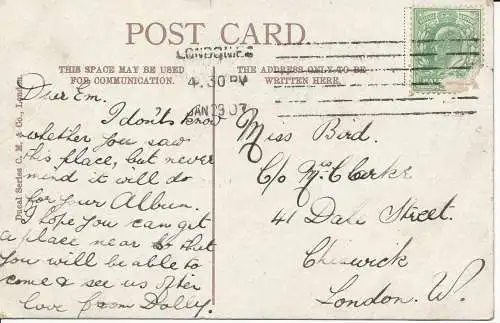 POST CARD.
THIS SPACE MAY BE USED
FOR COMMUNICATION.
THE ADDRESS ONLY TO BE
WRITTEN HERE.
LONDON. W.C
4.30 PM
JAN 29 07
Ducal Series C. M. & Co., London.
Dear Em.
I don't know
whether you saw
this place, but never
mind it will do
for your Album.
I hope you can get
a place near to that
you will be able to
come & see us often
love from Dolly.
Miss Bird.
C/o Mrs Clarke
41 Dale Street.
Chiswick
London. W.